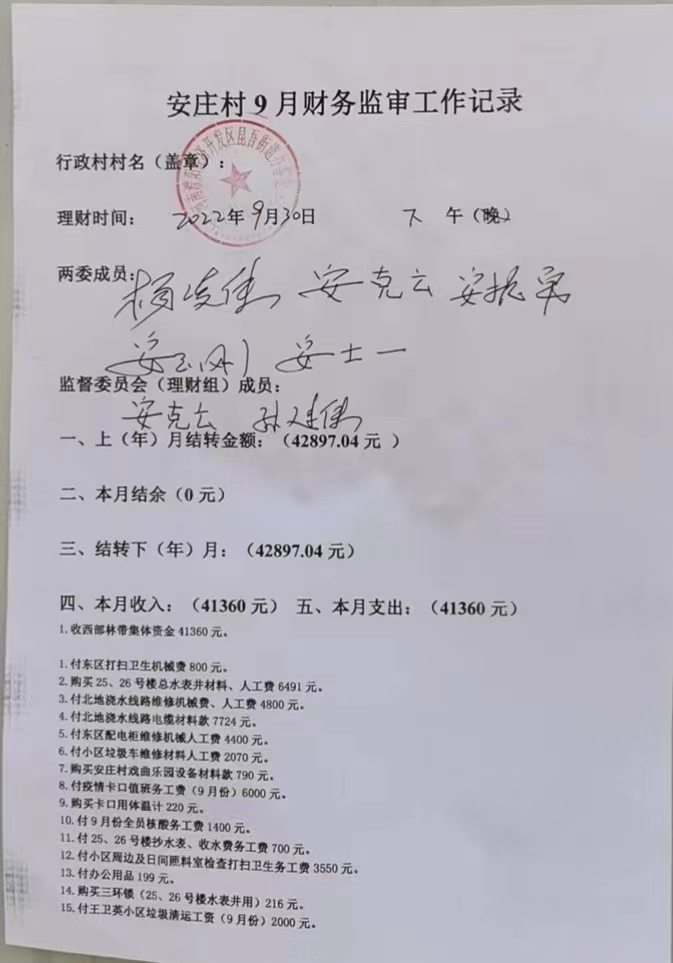 安庄村 9 月财务监审工作记录
行政村村名（盖章）：
理财时间： 2022年 9月30日 下 午（晚）
两委成员：
杨 伟 安克云 安振军
安玉刚 安士一
监督委员会（理财组）成员：
安克云 孙建伟
一、上（年）月结转金额：（42897.04 元 ）
二、本月结余（0 元）
三、结转下（年）月：（42897.04 元）
四、本月收入：（41360 元） 五、本月支出：（41360 元）
1.收西部林带集体资金 41360 元。
1.付东区打扫卫生机械费 800 元。
2.购买 25、26 号楼总水表井材料、人工费 6491 元。
3.付北地浇水线路维修机械费、人工费 4800 元。
4.付北地浇水线路电缆材料款 7724 元。
5.付东区配电柜维修机械人工费 4400 元。
6.付小区垃圾车维修材料人工费 2070 元。
7.购买安庄村戏曲乐园设备材料款 790 元。
8.付疫情卡口值班务工费（9 月份）6000 元。
9.购买卡口用体温计 220 元。
10.付 9 月份全员核酸务工费 1400 元。
11.付 25、26 号楼抄水表、收水费务工费 700 元。
12.付小区周边及日间照料室检查打扫卫生务工费 3550 元。
13.付办公用品 199 元。
14.购买三环锁（25、26 号楼水表井用）216 元。
15.付王卫英小区垃圾清运工资（9 月份）2000 元。